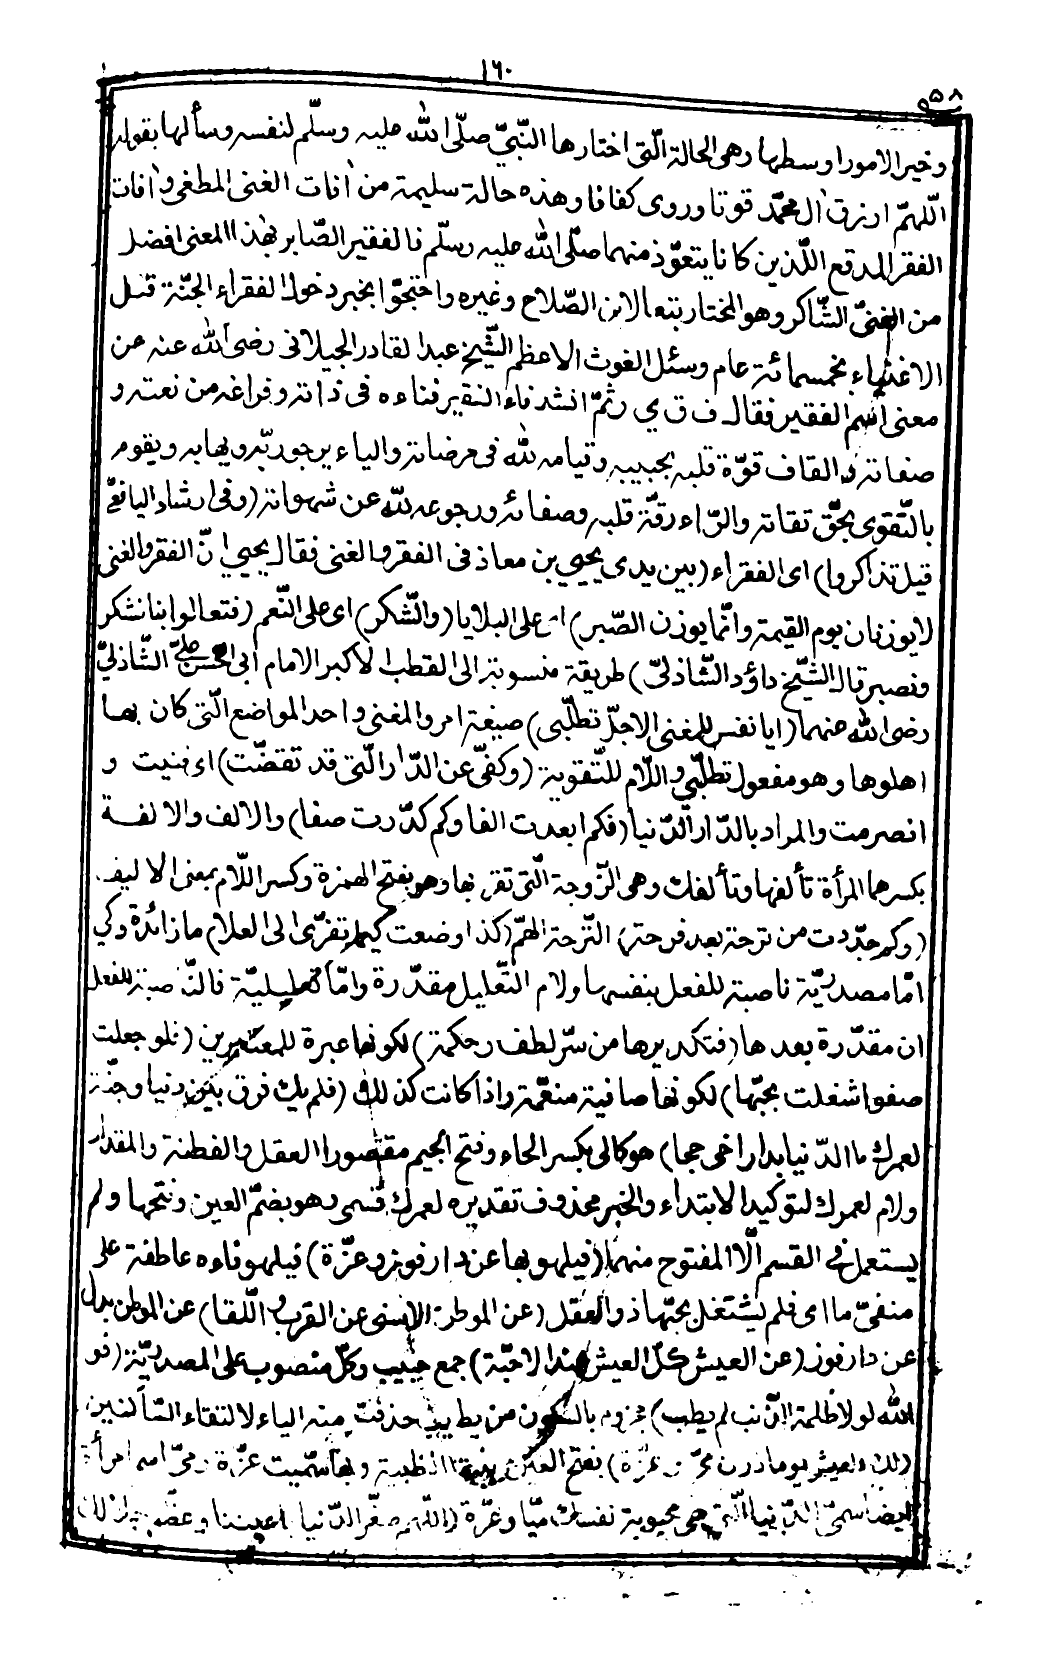 ١٦٠
٩٥٨
وخير الامور اوسطها وهي الحالة الّتى اختارها النّبيّ صلّى الله عليه وسلّم لنفسه وسألها بقوله
اللّهمّ ارزق اٰل محمّد قوتا وروى كفافا وهذه حالة سليمة من اٰفات الغنى المطغى واٰفات
الفقر المدقع اللّذين كانا يتعوّذ منهما صلّى الله عليه وسلّم فالفقير الصّابر بهٰذا المعنى افضل
من الغنىّ الشّاكر وهو المختار تبعا لابن الصّلاح وغيره واحتجّوا بخبر دخول الفقراء الجنّة قبل
الاغنياء بخمسمائة عام وسئل الغوث الاعظم الشّيخ عبد القادر الجيلانى رضى الله عنه عن
معنى اسم الفقير فقال ف ق ي ر ثمّ انشد فاء الفقير فناءه فى ذاته وفراغه من نعته و
صفاته والقاف قوّة قلبه بحبيبه وقيامه لله فى مرضاته والياء يرجو ربّه ويهابه ويقوم
بالتّقوى بحقّ تقاته والرّاء رقّة قلبه وصفائه ورجوعه لله عن شهواته (وفى ارشاد اليافعىّ
قيل تذاكروا) اى الفقراء (بين يدى يحيى بن معاذ فى الفقر والغنى فقال يحيى انّ الفقر والغنى
لا يوزنان يوم القيمة وانّما يوزن الصّبر) اى على البلايا (والشّكر) اى على النّعم (فتعالوا بنا نشكر
ونصبر قال الشّيخ داؤد الشّاذلىّ) طريقة منسوبة الى القطب الاكبر الامام ابى الحسن علىّ الشّاذلىّ
رضى الله عنهما (ايا نفس للمغنى الاجلّ تطلّبى) صيغة امر والمغنى واحد المواضع الّتى كان بها
اهلوها وهو مفعول تطلّبى واللّام للتّقوية (وكفّى عن الدّار الّتى قد تقضّت) اى فنيت و
انصرمت والمراد بالدّار الدّنيا (فكم ابعدت الفا وكم كدّرت صفا) والالف والالفة
بكسرهما المرأة تألفها وتألفك وهى الزّوجة الّتى تقر بها وهو بفتح الهمزة وكسر اللّام بمعنى الاليف
(وكم جدّدت من ترحة بعد فرحة) التّرحة الهمّ (كذا وضعت كيما تفرّى الى العلا) ما زائدة وكى
امّا مصدريّة ناصبة للفعل بنفسها ولام التّعليل مقدّرة وامّا تعليليّة فالنّاصبة للفعل
ان مقدّرة بعدها (فتكديرها من سرّ لطف وحكمة) لكونها عبرة للمعتبرين (فلو جعلت
صفوا شغلت بحبّها) لكونها صافية منغّمة واذا كانت كذلك (فلم يك فرق بين دنيا وجنّة
لعمرك ما الدّنيا بدار اخى حجا) هو كالى بكسر الحاء وفتح الجيم مقصورا العقل والفطنة والمقدار
ولام لعمرك لتوكيد الابتداء والخبر محذوف تقديره لعمرك قسمى وهو بضمّ العين وفتحها ولم
يستعمل فى القسم الّا المفتوح منهما (فيلهو بها عن دار فوز وعزّة) فيلهو فاءه عاطفة على
منفىّ ما اى فلم يشتغل بحبّها ذو العقل (عن الموطن الاسنى عن القرب واللّقا) عن الموطن بدل
عن دار فوز (عن العيش كلّ العيش عند الاحبّة) جمع حبيب وكلّ منصوب على المصدريّة (فو
الله لولا ظلمة الذّنب لم يطب) مجزوم بالسّكون من يطيب حذفت منه الياء لالتقاء السّاكنين
(لك العيش يوما دون مىّ وعزّة) بفتح العين بنية الظّبية وبها سمّيت عزّة ومىّ اسم امرأة
ايضا سمّى الدّنيا الّتى هى محبوبة نفسك ميّا وعزّة (اللّهمّ صغّر الدّنيا باعيننا وعظّم